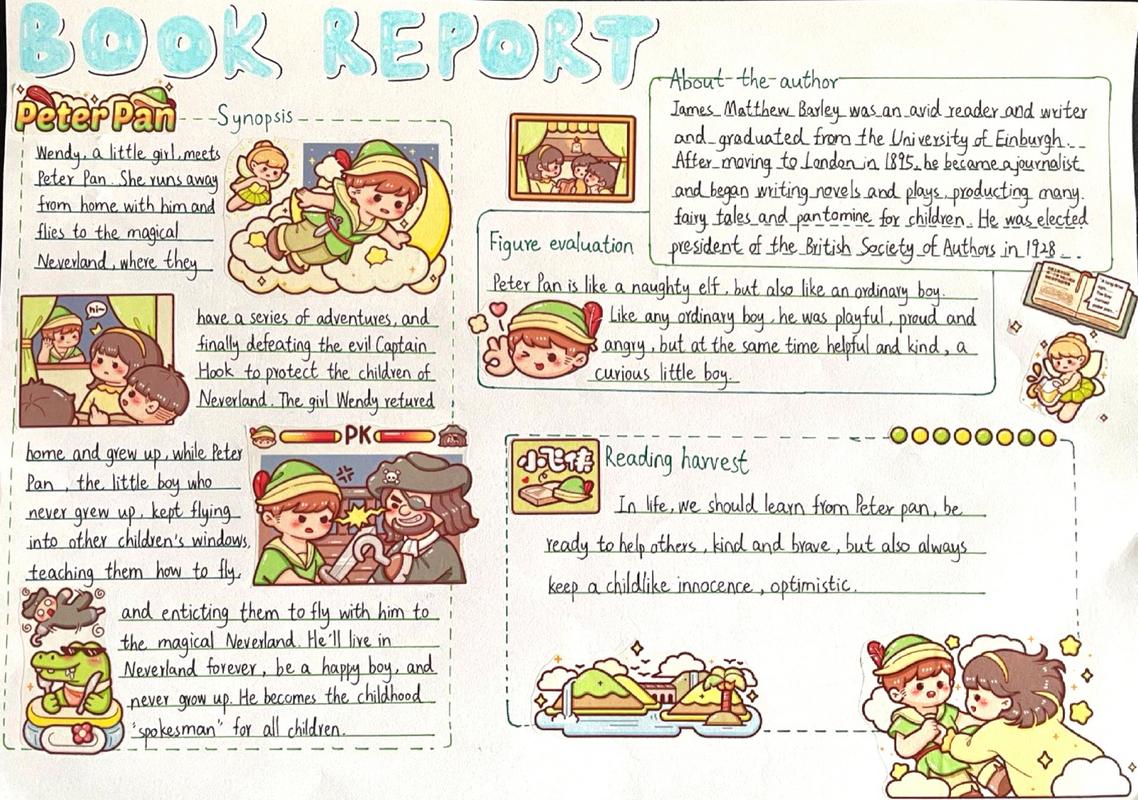 BOOK REPORT
Peter Pan
Synopsis
Wendy, a little girl, meets
Peter Pan. She runs away
from home with him and
flies to the magical
Neverland, where they
hi~
have a series of adventures, and
finally defeating the evil Captain
Hook to protect the children of
Neverland. The girl Wendy retured
home and grew up, while Peter
Pan, the little boy who
never grew up, kept flying
into other children's windows,
teaching them how to fly,
PK
and enticting them to fly with him to
the magical Neverland. He'll live in
Neverland forever, be a happy boy, and
never grow up. He becomes the childhood
"spokesman" for all children.
About the author
James Matthew Barley was an avid reader and writer
and graduated from the University of Einburgh.
After moving to London in 1895, he became a journalist
and began writing novels and plays, producting many
fairy tales and pantomine for children. He was elected
president of the British Society of Authors in 1928.
Figure evaluation
Peter Pan is like a naughty elf, but also like an ordinary boy.
Like any ordinary boy, he was playful, proud and
angry, but at the same time helpful and kind, a
curious little boy.
小飞侠
Reading harvest
In life, we should learn from Peter pan, be
ready to help others, kind and brave, but also always
keep a childlike innocence, optimistic.